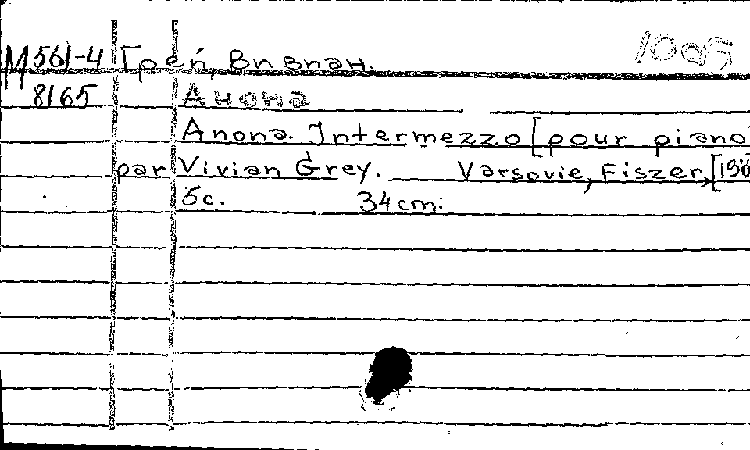 1005
М561-4 Грей, Вивпан.
8165 Анона
Anona. Intermezzo [pour piano
par Vivian Grey. __ Varsovie, Fiszer, [190
5с. 34cm.